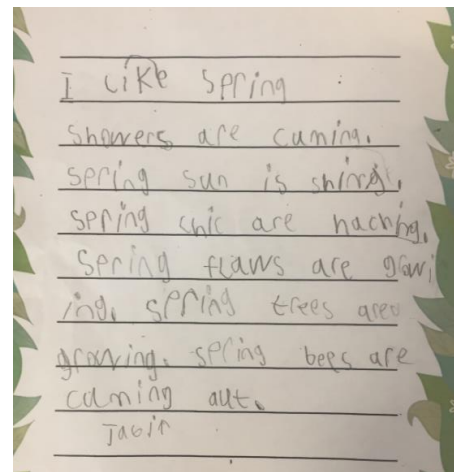 I Like Spring
showers are cuming.
spring sun is shining.
spring chic are haching.
spring flaws are growi
ing. spring trees are
growing. spring bees are
cuming aut.